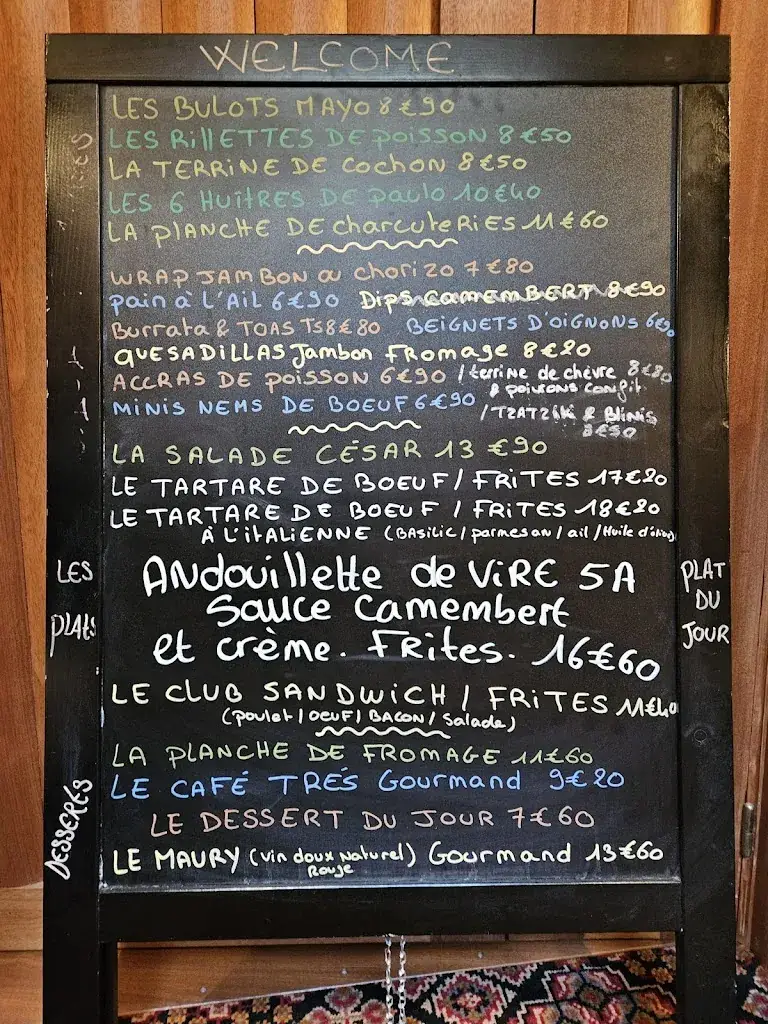 WELCOME
LES BULOTS MAYO 8€90
LES RILLETTES DE POISSON 8€50
LA TERRINE DE COCHON 8€50
LES 6 HUITRES DE PAULO 10€40
LA PLANCHE DE CHARCUTERIES 11€60
WRAP JAMBON OU CHORIZO 7€80
PAIN À L'AIL 6€90 DIPS CAMEMBERT 8€90
BURRATA & TOASTS 8€80 BEIGNETS D'OIGNONS 6€90
QUESADILLAS JAMBON FROMAGE 8€20
ACCRAS DE POISSON 6€90 / terrine de chèvre 8€80
& poivrons confit
MINIS NEMS DE BOEUF 6€90 / TZATZIKI & Blinis
8€50
LA SALADE CÉSAR 13€90
LE TARTARE DE BOEUF / FRITES 17€20
LE TARTARE DE BOEUF / FRITES 18€20
À L'ITALIENNE (BASILIC / parmesan / ail / Huile d'olive)
LES
PLATS
ANdouillette de VIRE 5A
Sauce Camembert
et crème. FRites. 16€60
PLAT
DU
JOUR
LE CLUB SANDWICH / FRITES 11€40
(poulet / OEUF / BACON / Salade)
DESSERTS
LA PLANCHE DE FROMAGE 11€60
LE CAFÉ TRÉS Gourmand 9€20
LE DESSERT DU JOUR 7€60
LE MAURY (vin doux Naturel) Gourmand 13€60
Rouge